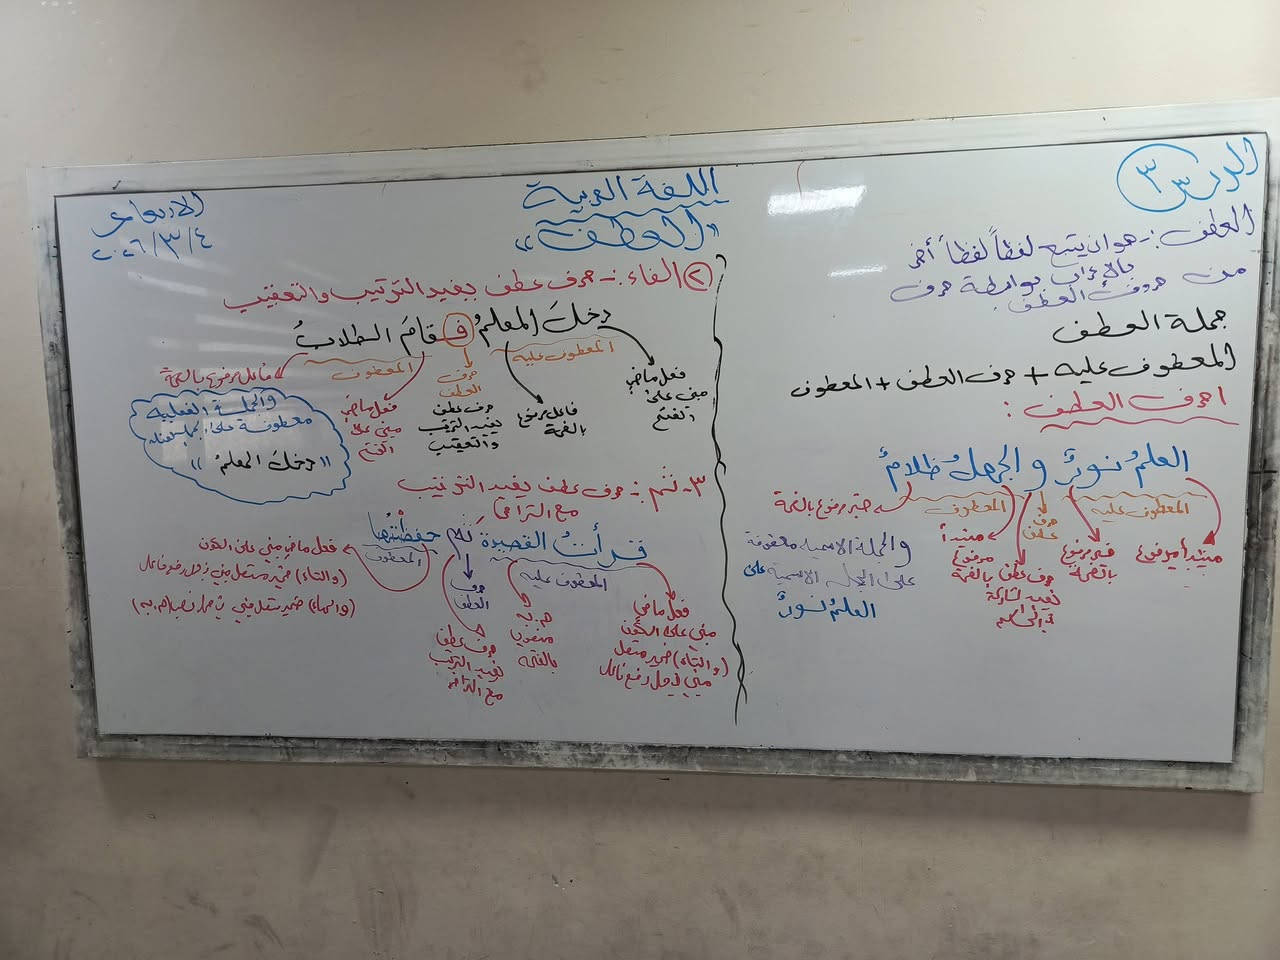 الدرس ٣
اللغة العربية
"العطف"
الاربعاء
٢٠٢٦/٣/٤
العطف :- هو ان يتبع لفظاً لفظاً أخر
بالإعراب بواسطة حرف
من حروف العطف.
جملة العطف
المعطوف عليه + حرف العطف + المعطوف
احرف العطف :
العلمُ نورٌ والجهلُ ظلامٌ
المعطوف عليه
حرف عطف
المعطوف
مبتدأ مرفوع
خبر مرفوع
بالضمة
حرف عطف
يفيد المشاركة
مبتدأ
مرفوع
بالضمة
خبر مرفوع بالضمة
والجملة الاسمية معطوفة
على الجملة الاسمية
العلمُ نورٌ
٢ الفاء :- حرف عطف يفيد الترتيب والتعقيب
دخلَ المعلمُ فقامَ الطلابُ
المعطوف عليه
حرف
العطف
المعطوف
فعل ماضي
مبني على
الفتح
فاعل مرفوع
بالضمة
حرف عطف
يفيد الترتيب
والتعقيب
فعل ماضي
مبني على
الفتح
فاعل مرفوع بالضمة
والجملة الفعلية
معطوفة على
"دخلَ المعلمُ"
٣- ثم :- حرف عطف يفيد الترتيب
مع التراخي
قرأتُ القصيدة ثم حفظْتُها
المعطوف عليه
حرف
العطف
المعطوف
فعل ماضي
مبني على السكون
(والتاء) ضمير متصل
مبني في محل رفع فاعل
م. به
منصوب
بالفتحة
حرف عطف
يفيد الترتيب
مع التراخي
فعل ماضي مبني على السكون
(والتاء) ضمير متصل مبني في محل رفع فاعل
(والهاء) ضمير متصل مبني في محل نصب (م. به)